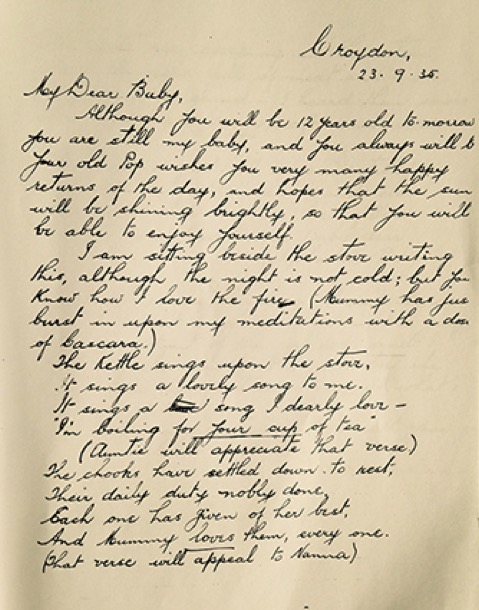 Croydon,
23. 9. 35.
My Dear Baby,
Although you will be 12 years old to-morrow
you are still my baby, and you always will b
Your old Pop wishes you very many happy
returns of the day, and hopes that the sun
will be shining brightly, so that you will
be able to enjoy yourself.
I am sitting beside the stove writing
this, although the night is not cold; but you
know how I love the fire. (Mummy has jus
burst in upon my meditations with a dose
of Cascara.)
The Kettle sings upon the stove,
It sings a lovely song to me.
It sings a song I dearly love –
"I'm boiling for your cup of tea"
(Auntie will appreciate that verse)
The chooks have settled down to rest,
Their daily duty nobly done,
Each one has given of her best,
And Mummy loves them, every one.
(That verse will appeal to Nanna)